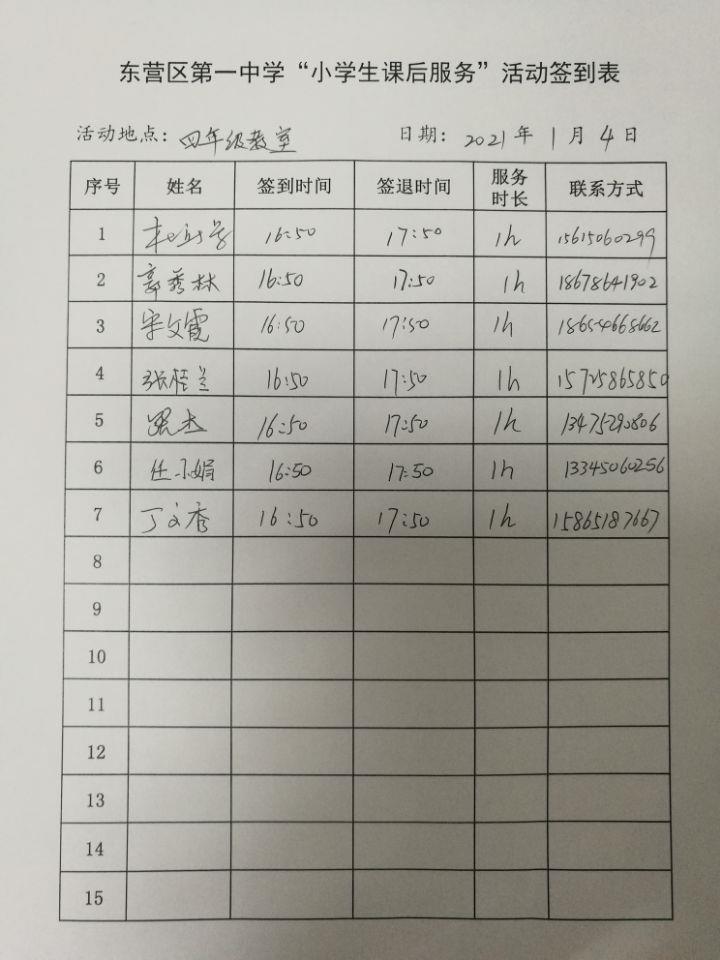 东营区第一中学“小学生课后服务”活动签到表
活动地点：四年级教室 日期：2021年1月4日
序号 姓名 签到时间 签退时间 服务时长 联系方式
1 16:50 17:50 1h 15615060299
2 郭秀林 16:50 17:50 1h 18678641902
3 宋文霞 16:50 17:50 1h 18654668662
4 张恒兰 16:50 17:50 1h 15725865850
5 16:50 17:50 1h 13475290806
6 任小娟 16:50 17:50 1h 13345060256
7 丁文香 16:50 17:50 1h 15865187667
8
9
10
11
12
13
14
15